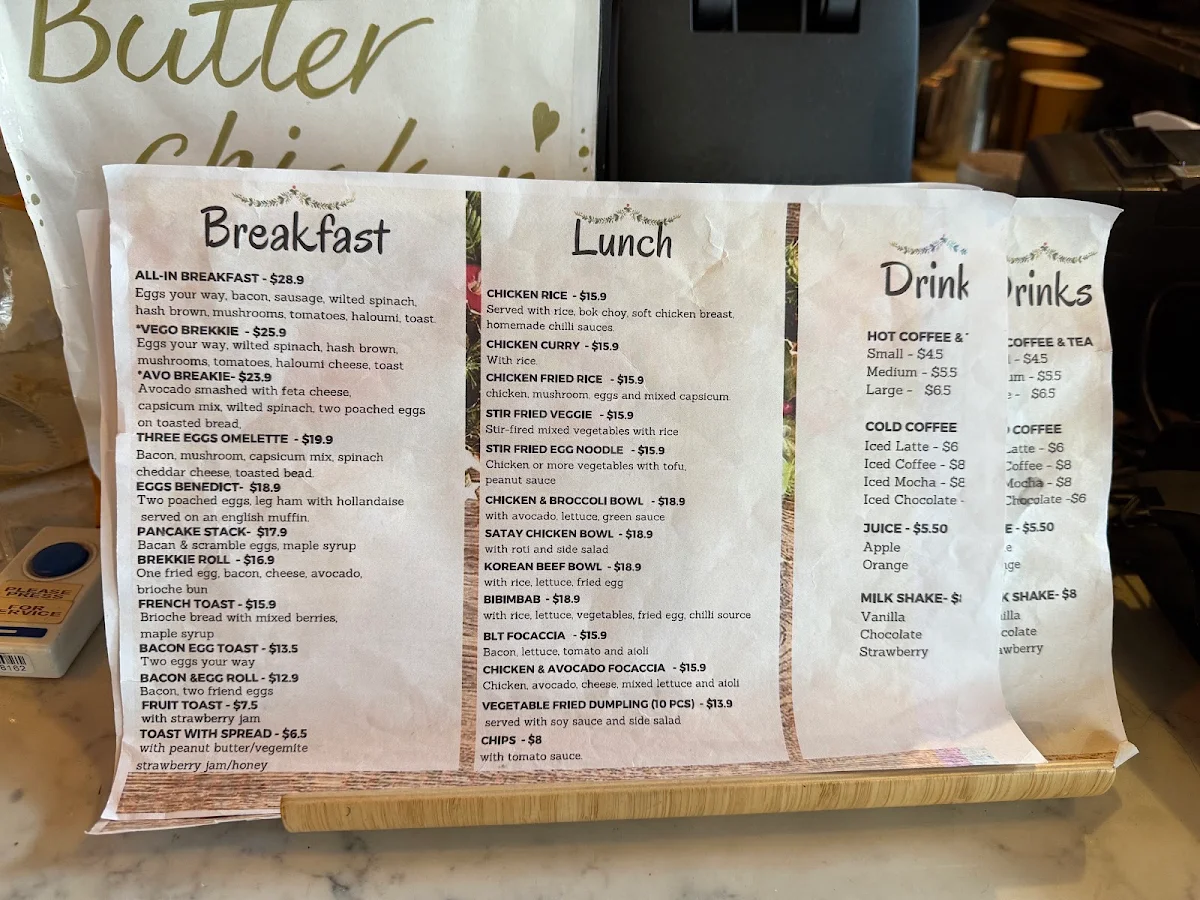 Butter
Breakfast
ALL-IN BREAKFAST - $28.9
Eggs your way, bacon, sausage, wilted spinach,
hash brown, mushrooms, tomatoes, haloumi, toast
*VEGO BREKKIE - $25.9
Eggs your way, wilted spinach, hash brown,
mushrooms, tomatoes, haloumi cheese, toast
*AVO BREAKIE- $23.9
Avocado smashed with feta cheese,
capsicum mix, wilted spinach, two poached eggs
on toasted bread,
THREE EGGS OMELETTE - $19.9
Bacon, mushroom, capsicum mix, spinach
cheddar cheese, toasted bead.
EGGS BENEDICT- $18.9
Two poached eggs, leg ham with hollandaise
served on an english muffin.
PANCAKE STACK- $17.9
Bacan & scramble eggs, maple syrup
BREKKIE ROLL - $16.9
One fried egg, bacon, cheese, avocado,
brioche bun
FRENCH TOAST - $15.9
Brioche bread with mixed berries,
maple syrup
BACON EGG TOAST - $13.5
Two eggs your way
BACON &EGG ROLL - $12.9
Bacon, two friend eggs
FRUIT TOAST - $7.5
with strawberry jam
TOAST WITH SPREAD - $6.5
with peanut butter/vegemite
strawberry jam/honey
Lunch
CHICKEN RICE - $15.9
Served with rice, bok choy, soft chicken breast,
homemade chilli sauces.
CHICKEN CURRY - $15.9
With rice.
CHICKEN FRIED RICE - $15.9
chicken, mushroom, eggs and mixed capsicum.
STIR FRIED VEGGIE - $15.9
Stir-fired mixed vegetables with rice
STIR FRIED EGG NOODLE - $15.9
Chicken or more vegetables with tofu,
peanut sauce
CHICKEN & BROCCOLI BOWL - $18.9
with avocado, lettuce, green sauce
SATAY CHICKEN BOWL - $18.9
with roti and side salad
KOREAN BEEF BOWL - $18.9
with rice, lettuce, fried egg
BIBIMBAB - $18.9
with rice, lettuce, vegetables, fried egg, chilli source
BLT FOCACCIA - $15.9
Bacon, lettuce, tomato and aioli
CHICKEN & AVOCADO FOCACCIA - $15.9
Chicken, avocado, cheese, mixed lettuce and aioli
VEGETABLE FRIED DUMPLING (10 PCS) - $13.9
served with soy sauce and side salad
CHIPS - $8
with tomato sauce.
Drink
HOT COFFEE &
Small - $4.5
Medium - $5.5
Large - $6.5
COLD COFFEE
Iced Latte - $6
Iced Coffee - $8
Iced Mocha - $8
Iced Chocolate -
JUICE - $5.50
Apple
Orange
MILK SHAKE- $
Vanilla
Chocolate
Strawberry
rinks
COFFEE & TEA
- $4.5
um - $5.5
e - $6.5
COFFEE
Latte - $6
Coffee - $8
Mocha - $8
Chocolate -$6
E - $5.50
e
nge
K SHAKE- $8
illa
colate
awberry
PLEASE
PRESS
FOR
SERVICE